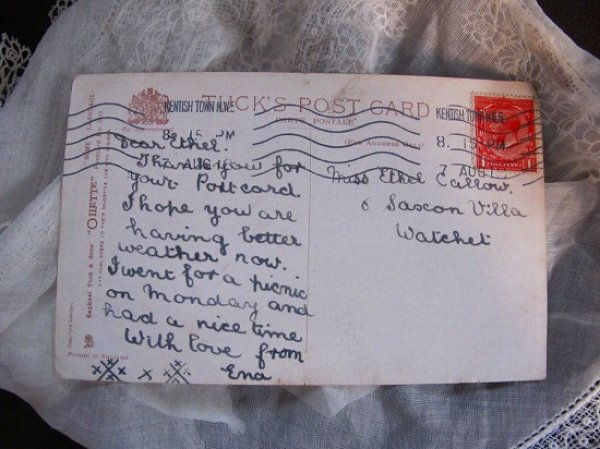 TUCK'S POST CARD
CARTE POSTALE
(For Address Only)
KENTISH TOWN N.W.5
8. 15 PM
7 AUG
KENTISH TOWN N.W.5
8. 15 PM
7 AUG
ONE PENNY
Dear Ethel.
Thank you for
your Postcard.
I hope you are
having better
weather now.
I went for a picnic
on Monday and
had a nice time
With love from
Ena
Miss Ethel Callow.
6 Saxon Villa
Watchet
Raphael Tuck & Sons' "OILETTE"
Printed in England